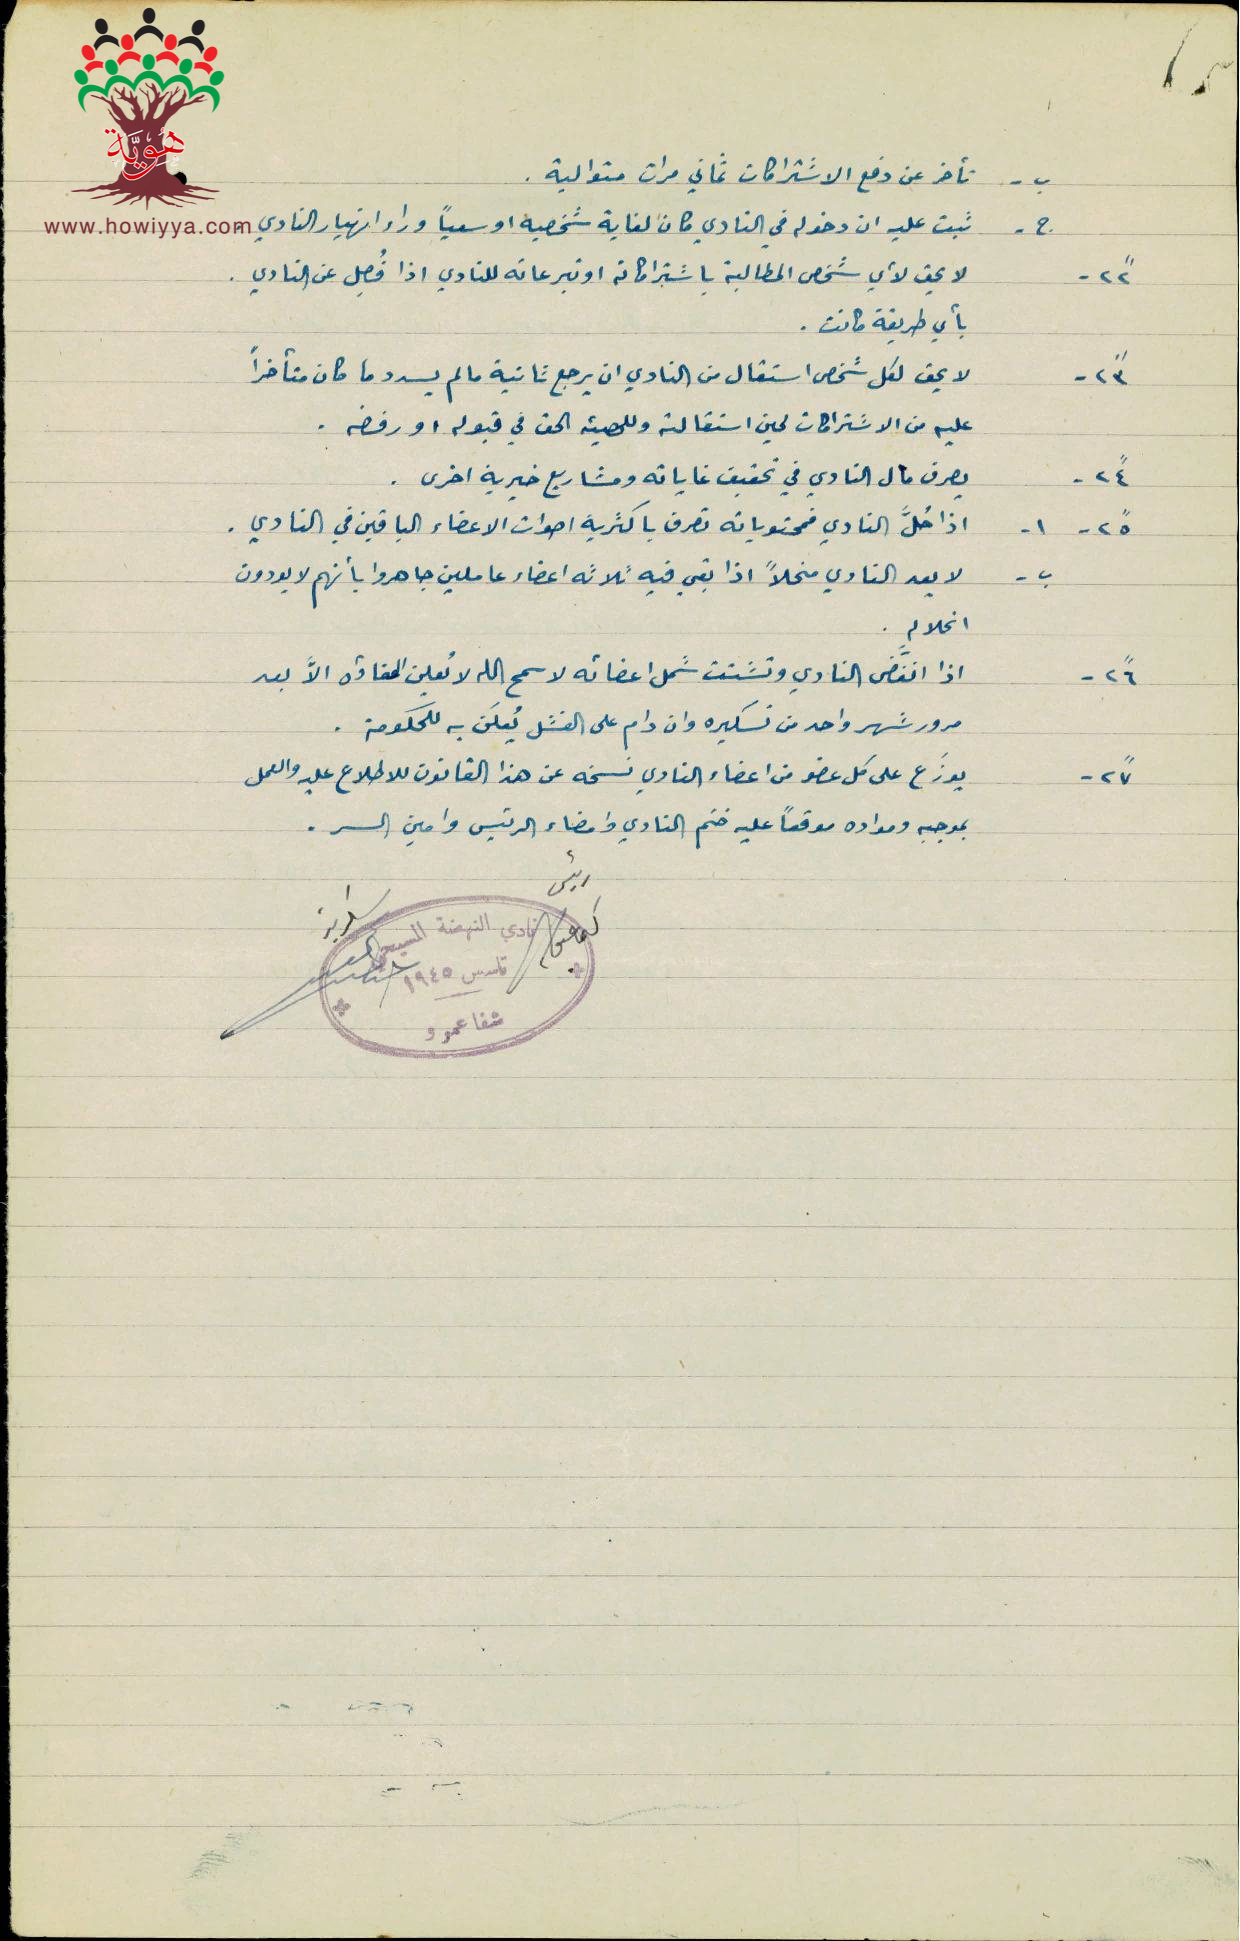 هُوِيَّة
www.howiyya.com
ب - تأخر عن دفع الاشتراكات ثماني مرات متوالية .
ج - ثبت عليه ان دخوله في النادي كان لغاية شخصية او سعياً وراء انهيار النادي
٢٢ - لا يحق لأي شخص المطالبة باشتراكاته او تبرعاته للنادي اذا فُصِل عن النادي .
بأي طريقة كانت .
٢٣ - لا يحق لكل شخص استقال من النادي ان يرجع ثانية ما لم يسدد ما كان متأخراً
عليه من الاشتراكات لحين استقالته وللهيئه الحق في قبوله او رفضه .
٢٤ - يصرف مال النادي في تحقيق غاياته ومشاريع خيرية اخرى .
٢٥ - ١ - اذا حُلَّ النادي فمحتوياته تصرف باكثرية اصوات الاعضاء الباقين في النادي .
ب - لا يعد النادي منحلاً اذا بقي فيه ثلاثه اعضاء عاملين جاهروا بأنهم لا يودون
انحلاله .
٢٦ - اذا انفَضَّ النادي وتشتت شمل اعضائه لا سمح الله لا تُعلن الحقائق الاَّ بعد
مرور شهر واحد من تسكيره وان دام على الفشل يُعلَن به للحكومة .
٢٧ - يوزَع على كل عضو من اعضاء النادي نسخه عن هذا القانون للاطلاع عليه والعمل
بموجبه ومواده موقعاً عليه ختم النادي وامضاء الرئيس وامين السر .
نادي النهضة المسيحي
تاسس ١٩٤٥
شفا عمرو